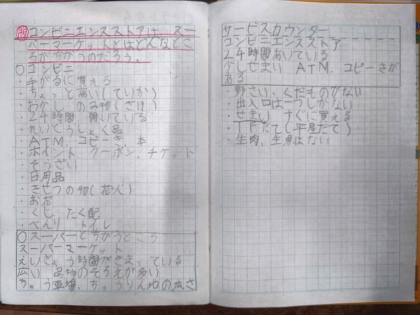 コンビニエンスストアは、スー
パーマーケットとはどんなところ
がちがうのだろう。
○コンビニ
・手がるに買える
・ちょっと高い(ていか)
・わがし のみ物(さけ)
・24時間開いている
・れいとうしょく品
・ATM、コピーき 本
・ポイント クーポン、チケット
・そうざい
・日用品
・きせつの物(花火)
・お花
・くじ、たく配
・べんり トイレ
○スーパーとちがうところ
スーパーマーケット
えいぎょう時間がきまっている
広い 品物のそろえが多い
ちゅう車場、ちゅうりん地の広さ
サービスカウンター
コンビニエンスストア
24時間あいている
せまい ATM、コピーきが
ある
・野さい、くだものがない
・出入口は一つしかない
・せまい すぐに買える
・1だて(平屋だて)
・生肉、生魚はない